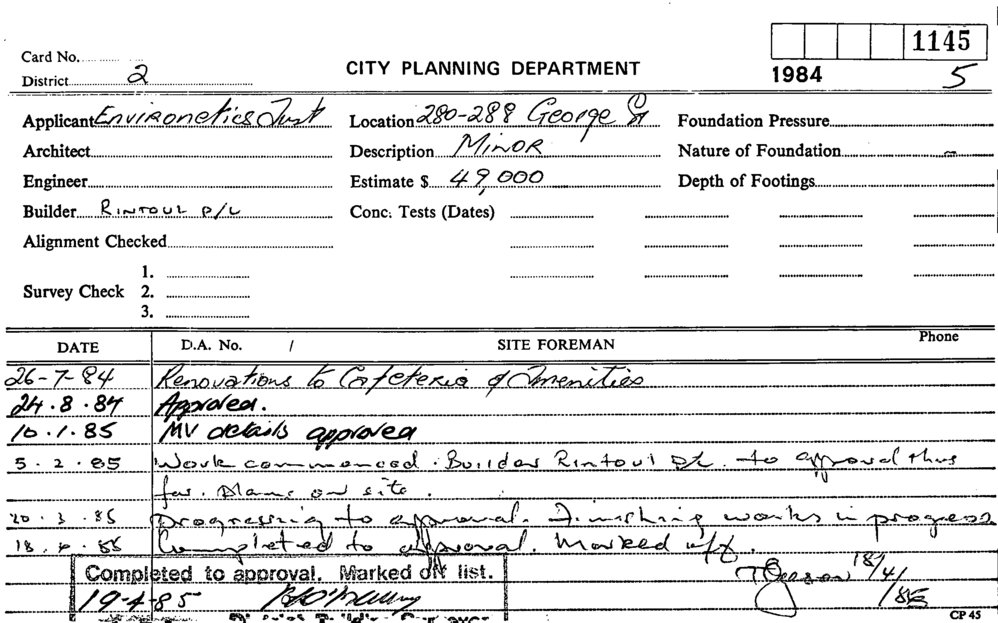 1145
Card No.
CITY PLANNING DEPARTMENT
District 2
1984 5
Applicant Environetics Just Location 280-288 George St Foundation Pressure
Architect Description MINOR Nature of Foundation
Engineer Estimate $ 49,000 Depth of Footings
Builder RINTOUL P/L Conc. Tests (Dates)
Alignment Checked
1.
Survey Check 2.
3.
DATE D.A. No. / SITE FOREMAN Phone
26-7-84 Renovations to Cafeteria & Amenities
24.8.84 Approved.
10.1.85 MV details approved
5.2.85 Work commenced. Builder Rintoul P/L. to approval thus
far. Plans on site.
20.3.85 Progressing to approval. Finishing works in progress
18.4.85 Completed to approval. Marked off.
Completed to approval. Marked off list.
18/4/85
19-4-85
CP 45